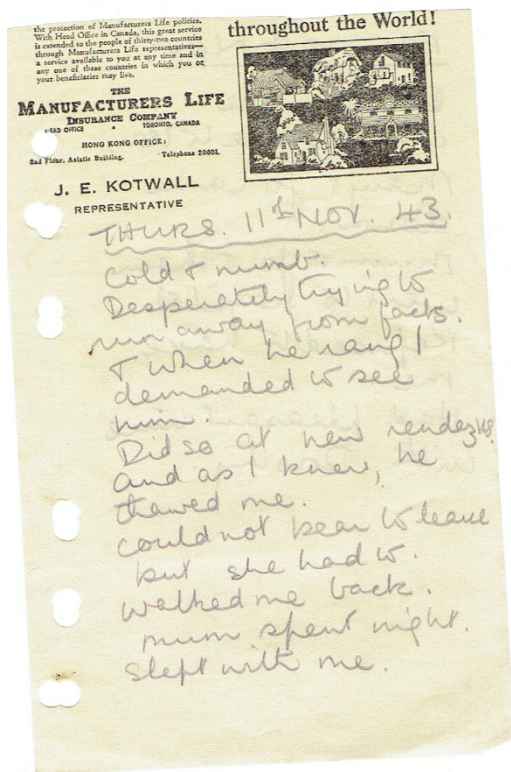 the protection of Manufacturers Life policies.
With Head Office in Canada, this great service
is extended to the people of thirty-two countries
through Manufacturers Life representatives—
a service available to you at any time and in
any one of these countries in which you or
your beneficiaries may live.
throughout the World!
THE
MANUFACTURERS LIFE
INSURANCE COMPANY
HEAD OFFICE TORONTO, CANADA
HONG KONG OFFICE:
2nd Floor, Asiatic Building. Telephone 20601.
J. E. KOTWALL
REPRESENTATIVE
THURS. 11th NOV. 43.
Cold & numb.
Desperately trying to
run away from facts.
& when he rang I
demanded to see
him.
Did so at new rendezvous.
And as I knew, he
thawed me.
Could not bear to leave
but she had to.
Walked me back.
Mum spent night.
Slept with me.